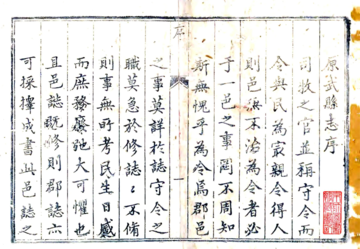 原武縣志序
司牧之官並稱守令而
令與民為最親令得人
則邑無不治為令者必
于一邑之事罔不周知
斯無愧乎為令為郡邑
序
一
之事莫詳於誌守令之
職莫急於修誌誌不脩
則事無所考民生日蹙
而庶務廢弛大可懼也
且邑誌既修則郡誌亦
可採擇成書此邑誌之